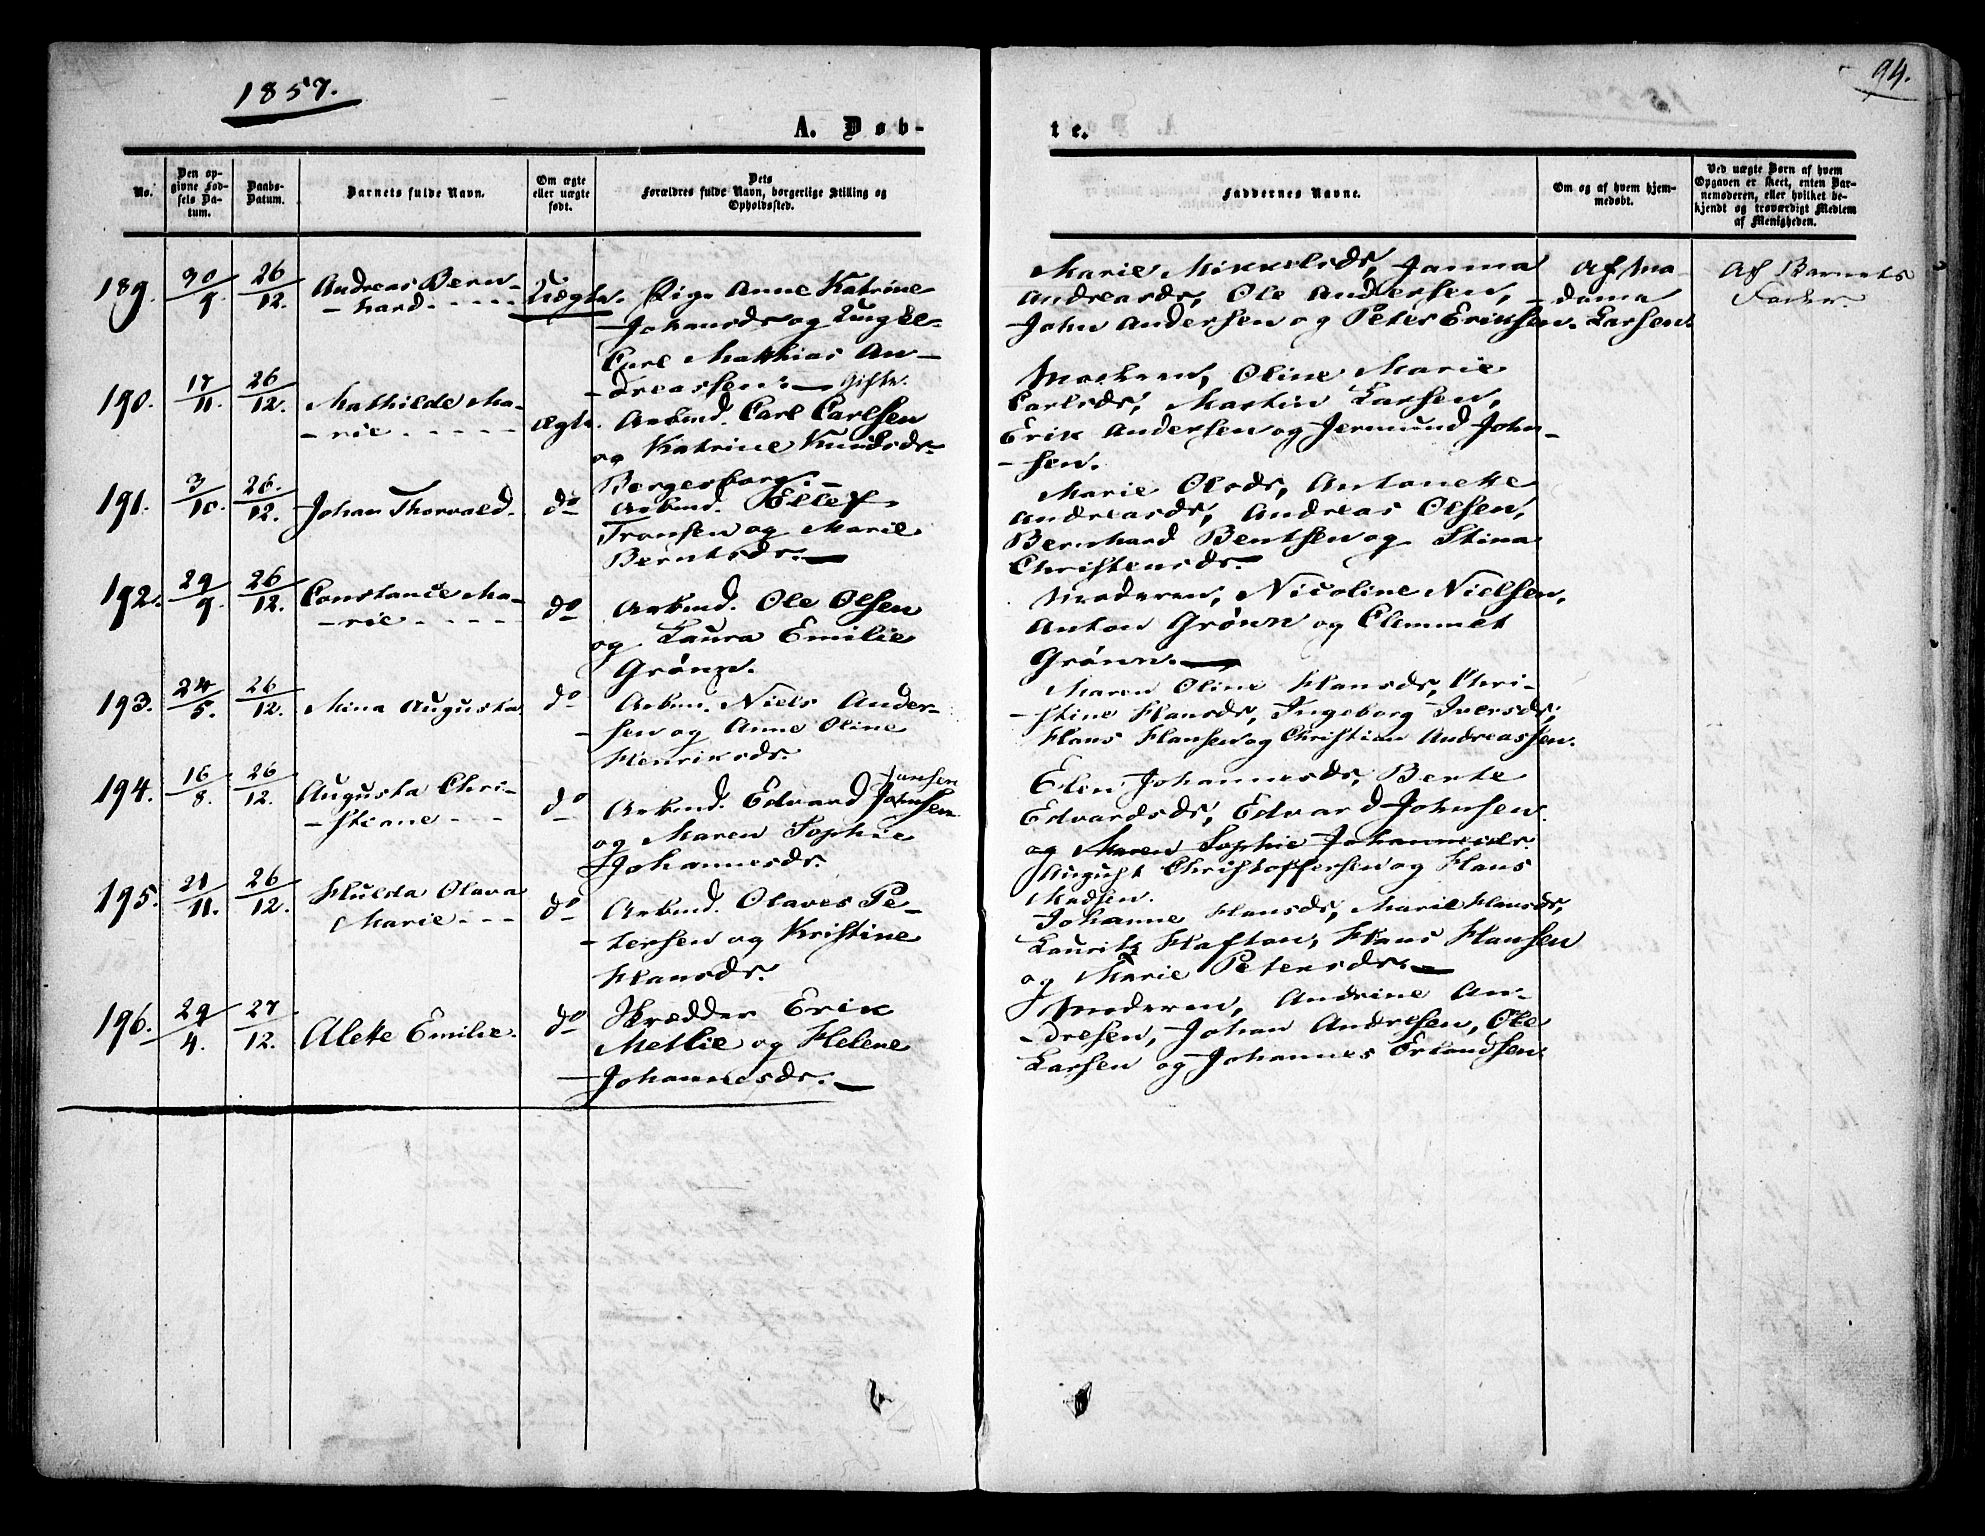 1857.
94.
A. Døb-
te.
No.
Den op-
givne Fød-
sels Da-
tum.
Daabs-
Datum.
Barnets fulde Navn.
Om ægte
eller uægte
født.
Dets
Forældres fulde Navn, borgerlige Stilling og
Opholdssted.
Faddernes Navne.
Om og af hvem hjem-
medøbt.
Ved uægte Børn af hvem
Opgaven er skeet, enten Bar-
nemoderen, eller hvilket be-
kjendt og troværdigt Medlem
af Menigheden.
189. 30/9. 26/12. Andreas Bern-
-hard.
Uægte.
Pige Anne Katrine
Johansdr og Ungkl-
Carl Mathias An-
dreassen.— Gifte.
Marie Mikkelsdr, Janna
Andreasdr, Ole Andersen,
John Andersen og Peter Eriksen.
Af Ma-
-dama
Larsen.
Af Barnets
Fader.
190. 17/11. 26/12. Mathilde Ma-
-rie
ægte.
Arbmd. Carl Carlsen
og Katrine Knudsdr
Bergersborg.
Moderen, Oline Marie
Carlsdr, Martin Larsen,
Erik Andersen og Jermund John-
-sen.
191. 3/10. 26./12. Johan Thorvald.
do
Arbmd. Ellef
Tronsen og Marie
Berntsdr.—
Marie Olsdr, Antonette
Andreasdr, Andreas Olsen,
Bernhard Bentsen og Stina
Christensdr.
192. 29/9. 26/12. Constance Ma-
-rie
do
Arbmd. Ole Olsen
og Laura Emilie
Grönn.
Moderen, Nicoline Nielsen,
Anton Grönn og Clemmet
Grönn.—
193. 24/5. 26/12. Mina Augusta
do
Arbm. Niels Ander-
-sen og Anne Oline
Henriksdr.
Maren Oline Hansdr, Chri-
-stine Hansdr, Ingeborg Iversdr,
Hans Hansen og Christian Andreassen.
194. 16/8. 26/12. Augusta Chri-
-stiane
do
Jansen
Arbmd. Edvard Johnsen
og Maren Sophie
Johannesdr.
Elen Johannesdr, Berte
Edvardsdr, Edvard Johnsen
og Maren Sophie Johannesdr.
August Christoffersen og Hans
Madsen.
195. 21/11. 26/12. Hulda Olava
Marie
do
Arbmd. Olaves Pe-
-tersen og Kristine
Hansdr.
Johanne Hansdr, Marie Hansdr,
Lauritz Hafton, Hans Hansen
og Marie Petersdr.—
196. 29/4. 27/12. Alette Emilie.
do
Skrædder Erik
Metlie og Helene
Johannesdr.—
Moderen, Andrine An-
-dresen, Johan Andresen, Ole
Larsen og Johannes Erlandsen